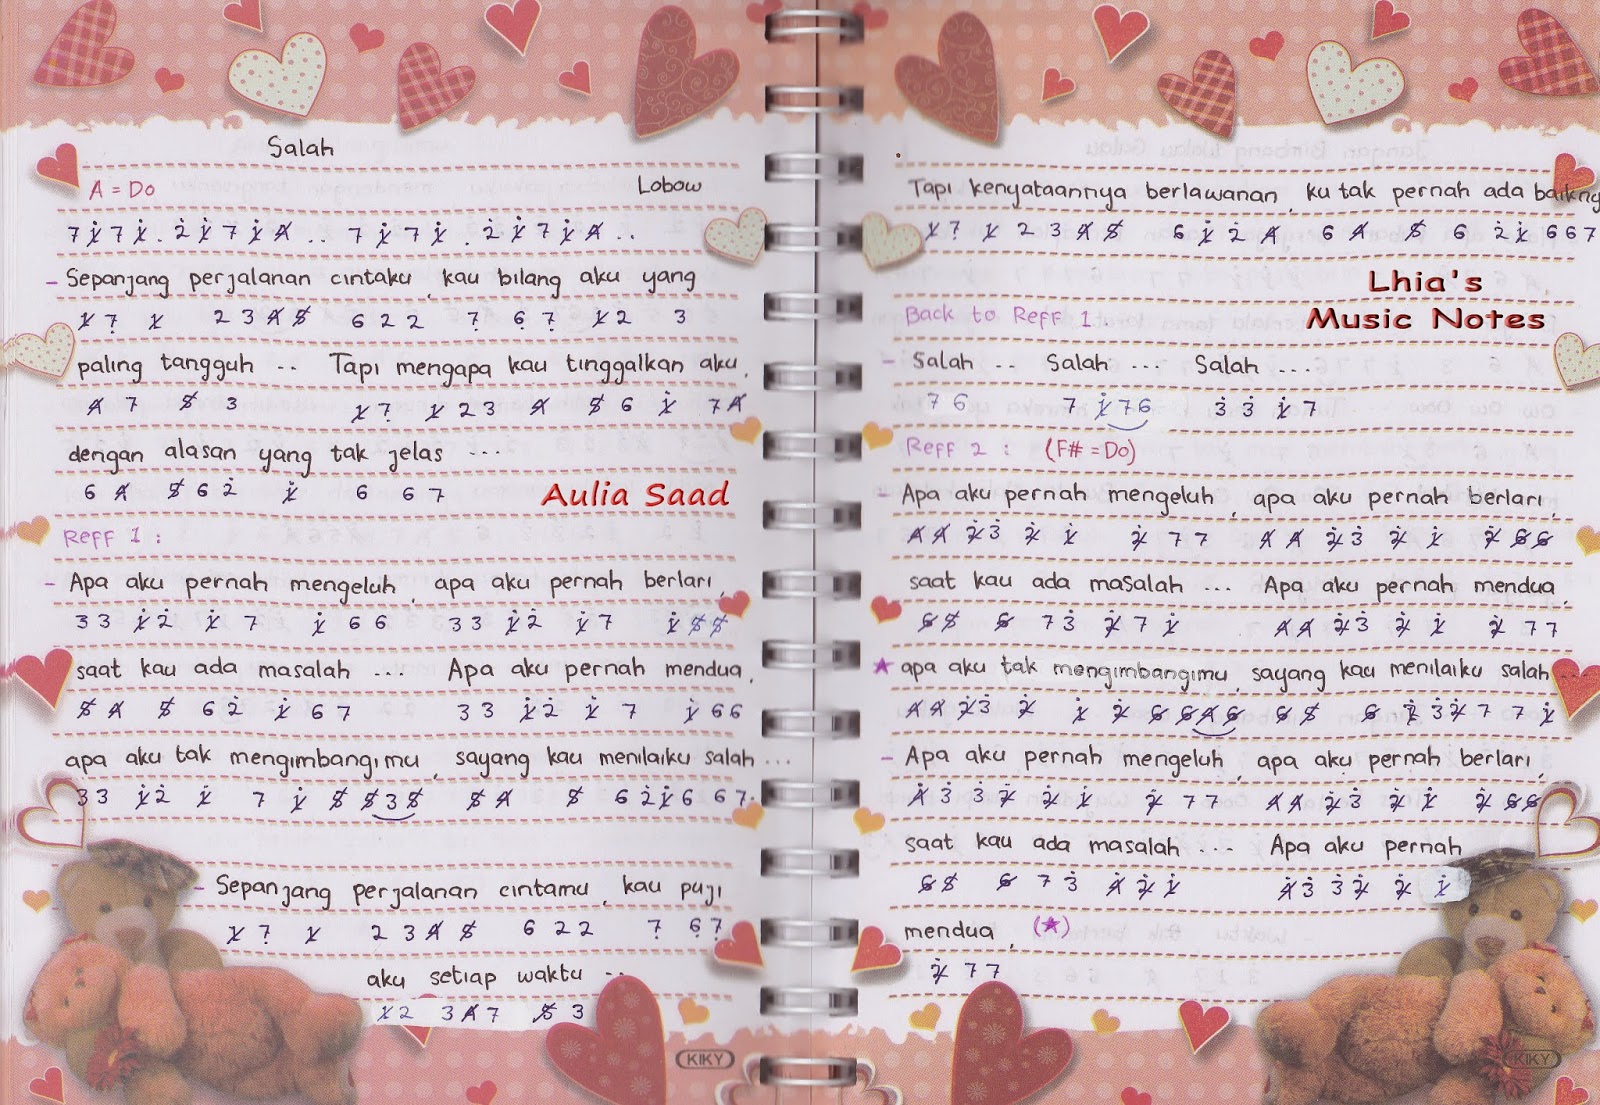 Salah
A = Do
Lobow
7 1 7 1 . 2 1 7 1 4 . . 7 1 7 1 . 2 1 7 1 4 . .
- Sepanjang perjalanan cintaku, kau bilang aku yang
1 7 1 2 3 4 5 6 2 2 7 6 7 1 2 3
paling tangguh .. Tapi mengapa kau tinggalkan aku,
4 7 5 3 1 7 1 2 3 4 5 6 1 7 4
dengan alasan yang tak jelas ...
6 4 5 6 2 1 6 6 7
Aulia Saad
Reff 1 :
- Apa aku pernah mengeluh, apa aku pernah berlari,
3 3 1 2 1 7 1 6 6 3 3 1 2 1 7 1 5 5
saat kau ada masalah ... Apa aku pernah mendua,
5 4 5 6 2 1 6 7 3 3 1 2 1 7 1 6 6
apa aku tak mengimbangimu, sayang kau menilaiku salah ...
3 3 1 2 1 7 1 5 5 3 5 5 4 5 6 2 1 6 6 7.
- Sepanjang perjalanan cintamu, kau puji
1 7 1 2 3 4 5 6 2 2 7 6 7
aku setiap waktu ..
1 2 3 4 7 5 3
KIKY
Tapi kenyataannya berlawanan, ku tak pernah ada baikny
1 7 1 2 3 4 5 6 1 2 4 6 4 5 6 2 1 6 6 7
Lhia's
Music Notes
Back to Reff 1.
- Salah .. Salah ... Salah ...
7 6 7 1 7 6 3 3 1 7
Reff 2 : (F# = Do)
- Apa aku pernah mengeluh, apa aku pernah berlari,
4 4 2 3 2 1 2 7 7 4 4 2 3 2 1 2 6 6
saat kau ada masalah ... Apa aku pernah mendua,
6 5 6 7 3 2 7 1 4 4 2 3 2 1 2 7 7
★ apa aku tak mengimbangimu, sayang kau menilaiku salah ...
4 4 2 3 2 1 2 6 6 4 6 6 5 6 2 3 2 7 7 1
- Apa aku pernah mengeluh, apa aku pernah berlari,
4 3 3 2 2 1 2 7 7 4 4 2 3 2 1 2 6 6
saat kau ada masalah ... Apa aku pernah
6 5 6 7 3 4 2 1 4 3 3 2 2 1
mendua, (★)
2 7 7
KIKY